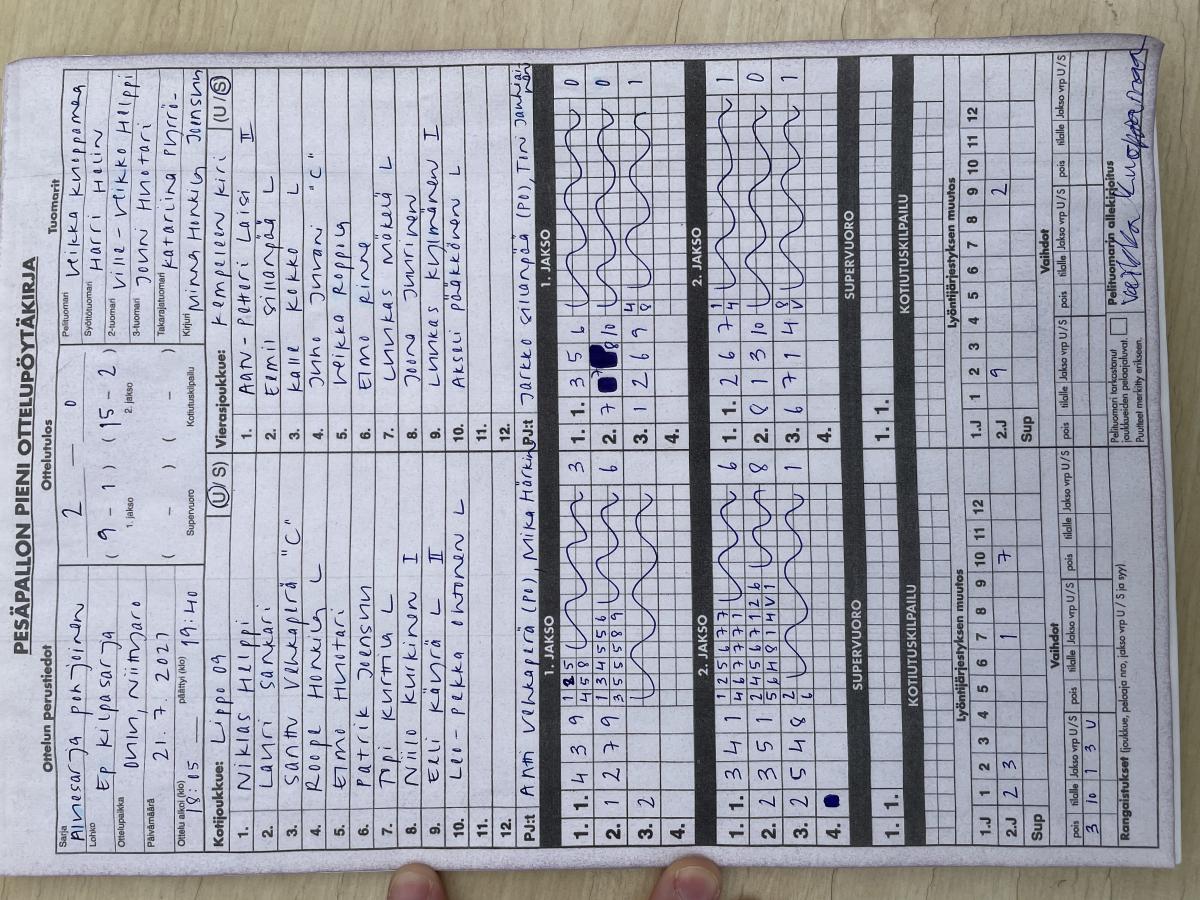 PESÄPALLON PIENI OTTELUPÖYTÄKIRJA
Ottelun perustiedot
Sarja
Aluesarja pohjoinen
Lohko
Ep kilpasarja
Ottelupaikka
Oulu, Niittyaro
Päivämäärä
21. 7. 2021
Ottelu alkoi (klo)
18:05
päättyi (klo)
19:40
Ottelutulos
2 — 0
( 9 - 1 ) ( 15 - 2 )
1. jakso 2. jakso
( - ) ( - )
Supervuoro Kotiutuskilpailu
Tuomarit
Pelituomari
Veikka Kuoppamaa
Syöttötuomari
Harri Helin
2-tuomari
Ville-Veikko Helppi
3-tuomari
Jouni Huotari
Takarajatuomari
Katariina
Kirjuri
Minna Honkila Joensuu
Kotijoukkue: Lippo 09 (U / S)
1. Niklas Helppi
2. Lauri Sankari
3. Santtu Vehkaperä "C"
4. Roope Honkila L
5. Elmo Huotari
6. Patrik Joensuu
7. Topi Kurttila L
8. Niilo Kurkinen I
9. Eeli Käyrä L II
10. Leo-Pekka Ohtonen L
11.
12.
PJ:t Antti Vehkaperä (PO), Mika Härkin
Vierasjoukkue: Kempeleen Kiri (U / S)
1. Aatu-Petteri Laisi II
2. Eemil Sillanpää L
3. Kalle Kokko L
4. Juho Juvani "C"
5. Veikka Roppila
6. Elmo Rinne
7. Luukas Mökelä L
8. Joona Juurinen
9. Luukas Kylmänen I
10. Akseli Pääkkönen L
11.
12.
PJ:t Jarkko Sillanpää (PO), Tin Jauhiainen
1. JAKSO
1. 1. 4 3 9 3
2. 1 2 7 9 1 3 4 5 5 6 6
3 5 5 5 8 9
3. 2
4.
1. JAKSO
1. 1. 3 5 6 0
2. 7 8 10 0
3. 1 2 6 9 4 1
8
4.
2. JAKSO
1. 1. 3 4 1 1 2 5 6 7 7 6
4 6 7 7 7 1
2. 2 3 5 1 2 4 5 6 7 1 2 6 8
5 6 4 8 1 4 V 1
3. 2 5 4 8 2 1
6
4.
2. JAKSO
1. 1. 2 6 7 1 1
4
2. 8 1 3 10 0
3. 6 7 1 4 8 1
V
4.
SUPERVUORO
1. 1.
SUPERVUORO
1. 1.
KOTIUTUSKILPAILU
KOTIUTUSKILPAILU
Lyöntijärjestyksen muutos
1 2 3 4 5 6 7 8 9 10 11 12
1.J
2.J 2 3 1 7
Sup
Lyöntijärjestyksen muutos
1 2 3 4 5 6 7 8 9 10 11 12
1.J
2.J 9 2
Sup
Vaihdot
pois tilalle Jakso vrp U/S pois tilalle Jakso vrp U/S pois tilalle Jakso vrp U/S
3 10 1 3 U
Vaihdot
pois tilalle Jakso vrp U/S pois tilalle Jakso vrp U/S pois tilalle Jakso vrp U/S
Rangaistukset (joukkue, pelaaja nro, jakso vrp U / S ja syy)
Pelituomari tarkastanut
joukkueiden pelaajaluvat.
Puutteet merkitty erikseen.
Pelituomarin allekirjoitus
Veikka Kuoppamaa